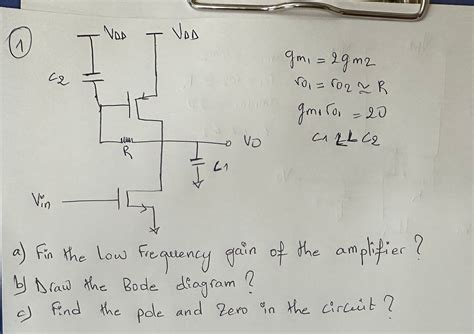 1
VDD VDD
gm1 = 2gm2
C2
ro1 = ro2 ≃ R
gm1ro1 = 20
C1 << C2
R
VO
C1
Vin
a) Fin the Low Frequency gain of the amplifier?
b) Draw the Bode diagram?
c) Find the pole and Zero in the circuit?